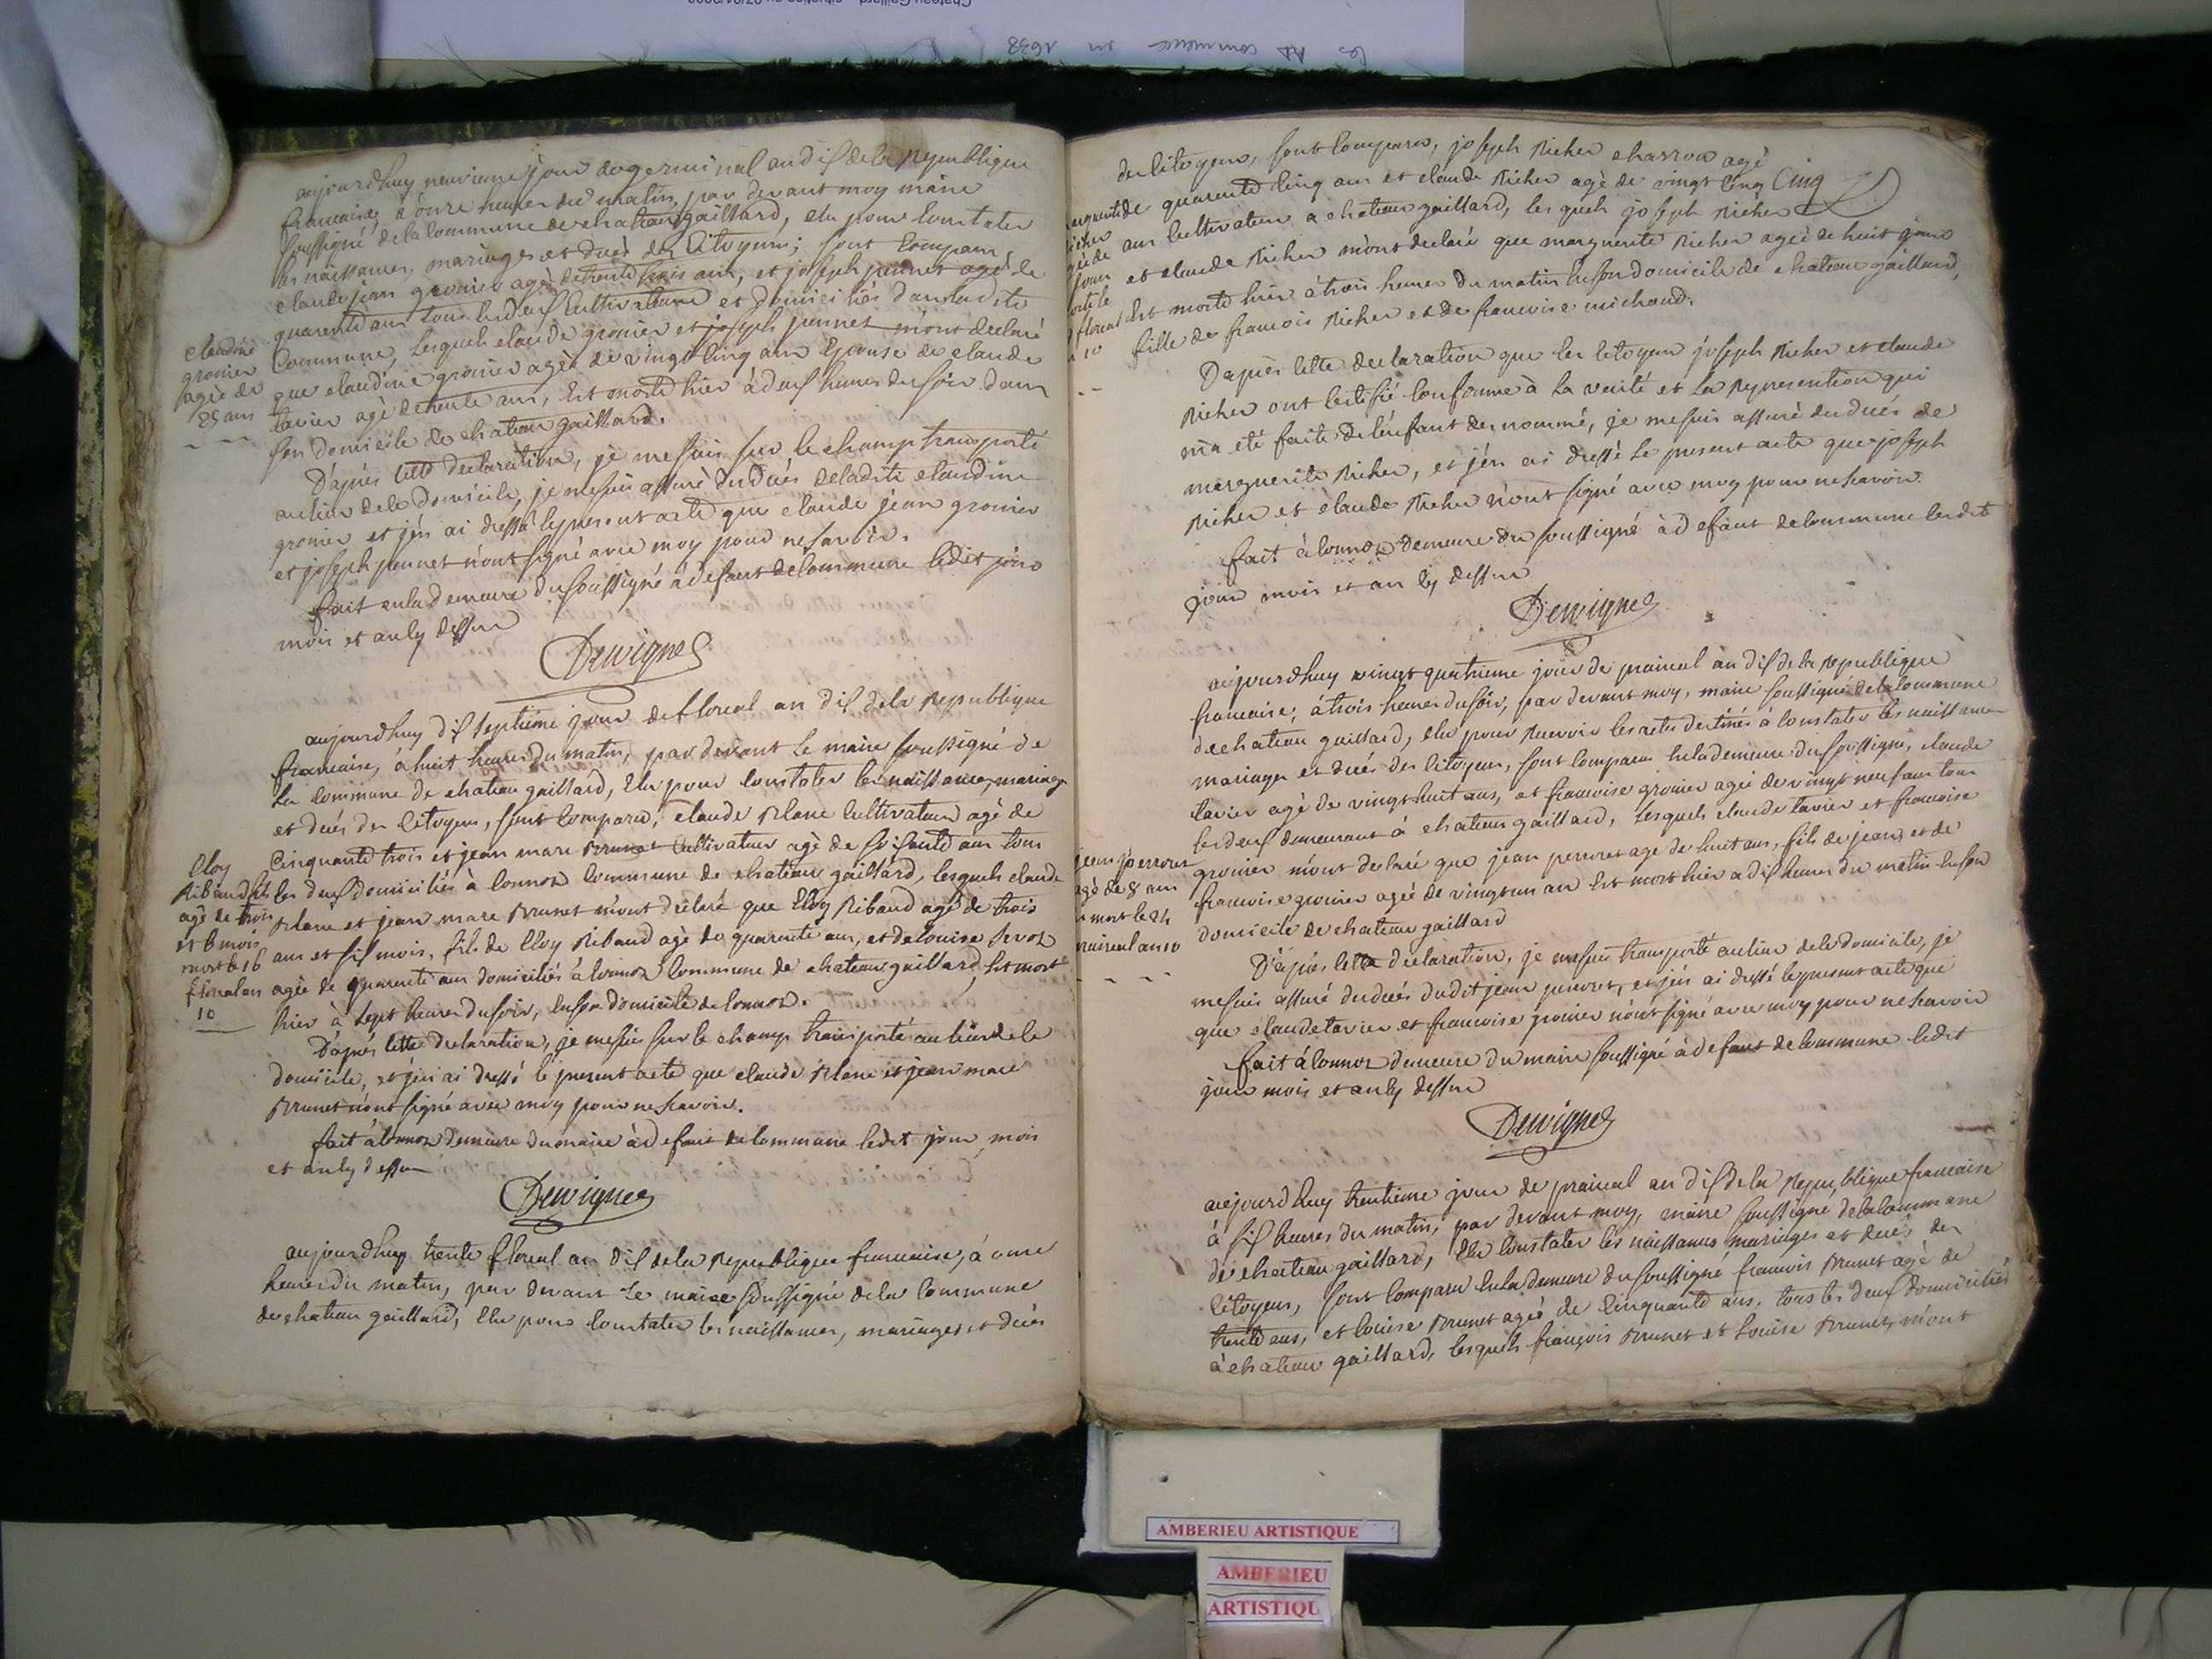 aujourdhuy neuvieme jour de germinal an dix de la Republique
francaise, à onze heures du matin, par devant moy maire
soussigné de la commune de chateau gaillard, elu pour constater
les naissances, mariages et deces des citoyens; sont comparu
claude jean gronier agé de trente trois ans, et joseph jannet agé de
quarente ans tous les deux cultivateurs et domiciliés dans ladite
commune, lesquels claude gronier et joseph jannet m'ont declaré
que claudine gronier agée de vingt cinq ans Epouse de claude
tavier agé de trente ans, Est morte hier à deux heures du soir dans
son domicile de chateau gaillard.
claudine
gronier
agée de
25 ans
D'apres cette declaration, je me suis sur le champ transporté
au lieu de ce domicile, je me suis assuré du deces de ladite claudine
gronier et j'en ai dressé le present acte que claude jean gronier
et joseph jannet n'ont signé avec moy pour ne savoir.
fait en la demeure du soussigné à defaut de commune ledit jour
mois et an cy dessus
Dewignes
aujourdhuy dix septieme jour de floreal an dix de la Republique
francaise, à huit heures du matin, par devant le maire soussigné de
la commune de chateau gaillard, Elu pour constater les naissances, mariages
et decés des citoyens, sont comparu, claude Blanc cultivateur agé de
cinquante trois et jean marc Brunet cultivateur agé de soixante ans tous
les deux domiciliés à Connoz commune de chateau gaillard, lesquels claude
Blanc et jean marc Brunet m'ont declaré que Eloy Ribaud agé de trois
ans et six mois, fils de Eloy Ribaud agé de quarente ans, et de louise
agée de quarente ans domiciliés à Connoz commune de chateau gaillard, Est mort
hier à sept heures du soir, en son domicile de Connoz.
Eloy
Ribaud fils
agé de trois
et 6 mois
mort le 16
floreal an
10
D'apres cette declaration, je me suis sur le champ transporté au lieu de ce
domicile, et j'en ai dressé le present acte que claude Blanc et jean marc
Brunet n'ont signé avec moy pour ne scavoir.
fait à Connoz demeure du maire à defaut de commune ledit jour, mois
et an cy dessus
Dewignes
aujourdhuy trente floreal an dix de la Republique francaise, à onze
heures du matin, par devant le maire soussigné de la commune
de chateau gaillard, Elu pour constater les naissances, mariages et decés
des citoyens, sont comparu, joseph Richer charron agé
de quarente cinq ans et claude Richer agé de vingt cinq Cinq
ans cultivateur a chateau gaillard, les quels joseph Richer
et claude Richer m'ont declaré que marguerite Richer ageè de huit jours
Est morte hier à trois heures du matin en son domicile de chateau gaillard,
fille de francois Richer et de francoise michaud.
richer
jours
floreal
10
D'apres cette declaration que les citoyens joseph Richer et claude
Richer ont certifié conforme à la verité et la representation qui
m'a eté faite de l'enfant denommé, je me suis assuré du decés de
marguerite Richer, et j'en ai dressé le present acte que joseph
Richer et claude Richer n'ont signé avec moy pour ne scavoir
fait à Connoz demeure du soussigné à defaut de commune ledit
jour mois et an cy dessus
Dewignes
aujourdhuy vingt quatrieme jour de prairial an dix de la Republique
francaise, à trois heures du soir, par devant moy, maire soussigné de la commune
de chateau gaillard, elu pour Recevoir les actes destinés à constater les naissances
mariages et decés des citoyens, sont comparus en la demeure du soussigné, claude
tavier agé de vingt huit ans, et francoise gronier agée de vingt neuf ans tous
les deux demeurant à chateau gaillard, lesquels claude tavier et francoise
gronier m'ont declaré que jean perroret agé de huit ans, fils de jean et de
francoise gronier ageé de vingt un an Est mort hier a dix heures du matin en son
domicile de chateau gaillard
jean perroret
agé de 8 ans
mort le 24
prairial an 10
D'apres cette declaration, je me suis transporté au lieu de ce domicile, je
me suis assuré du decés dudit jean perroret, et j'en ai dressé le present acte que
que claude tavier et francoise gronier n'ont signé avec moy pour ne scavoir
fait à Connoz demeure du maire soussigné à defaut de commune ledit
jour mois et an cy dessus
Dewignes
aujourdhuy trentieme jour de prairial an dix de la Republique francaise
à six heures du matin, par devant moy, maire soussigné de la commune
de chateau gaillard, Elu constater les naissances mariages et decés des
citoyens, sont comparu en la demeure du soussigné francois Brunet agé de
trente ans, et louise Brunet ageé de cinquante ans, tous les deux domiciliés
à chateau gaillard, lesquels françois Brunet et louise Brunet, m'ont
AMBERIEU ARTISTIQUE
AMBERIEU
ARTISTIQU